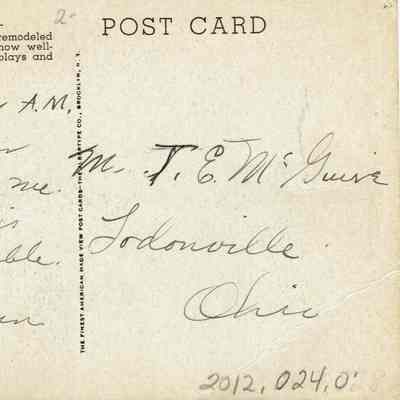 2-
POST CARD
remodeled
now well-
plays and
A.M,
me.
Mr. T. E. McGuire
Lodonville
Ohio
THE FINEST AMERICAN MADE VIEW POST CARDS—THE ALBERTYPE CO., BROOKLYN, N. Y.
2012.024.0